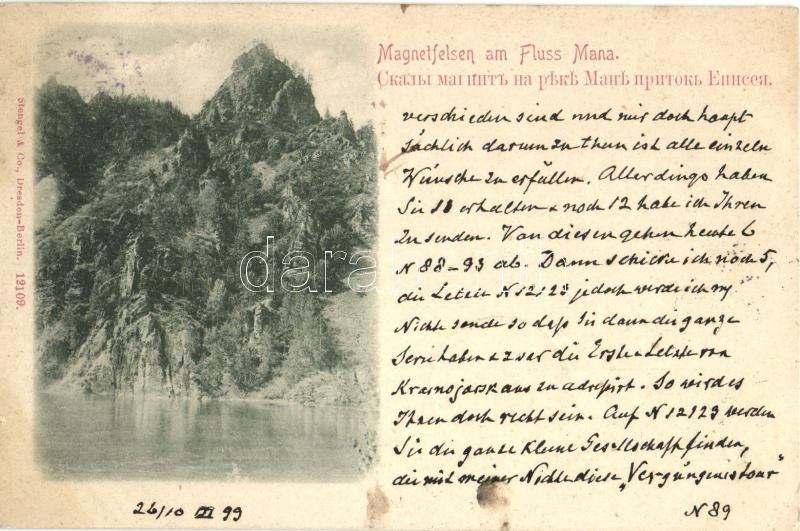 Magnetfelsen am Fluss Mana.
Скалы магнитъ на рѣкѣ Манѣ притокъ Енисея.
verschieden sind und mir doch haupt
sächlich darum zu thun ist alle einzeln
Wünsche zu erfüllen. Allerdings haben
Sie 11 erhalten & noch 12 habe ich Ihnen
zu senden. Von diesen gehen heute 6
N 88-93 ab. Dann schicke ich noch 5,
die Letzte N 12123 jedoch werde ich
Nichte sende so daß Sie dann die ganze
Serie haben & zwar die Erste & Letzte von
Krasnojarsk aus adressirt. So wird es
Ihnen doch recht sein. Auf N 12123 werden
Sie die ganze kleine Gesellschaft finden,
die mit meiner Nichte diese „Vergnügenstour"
N 89
26/10 99
Stengel & Co., Dresden-Berlin. 12109.
darabanth